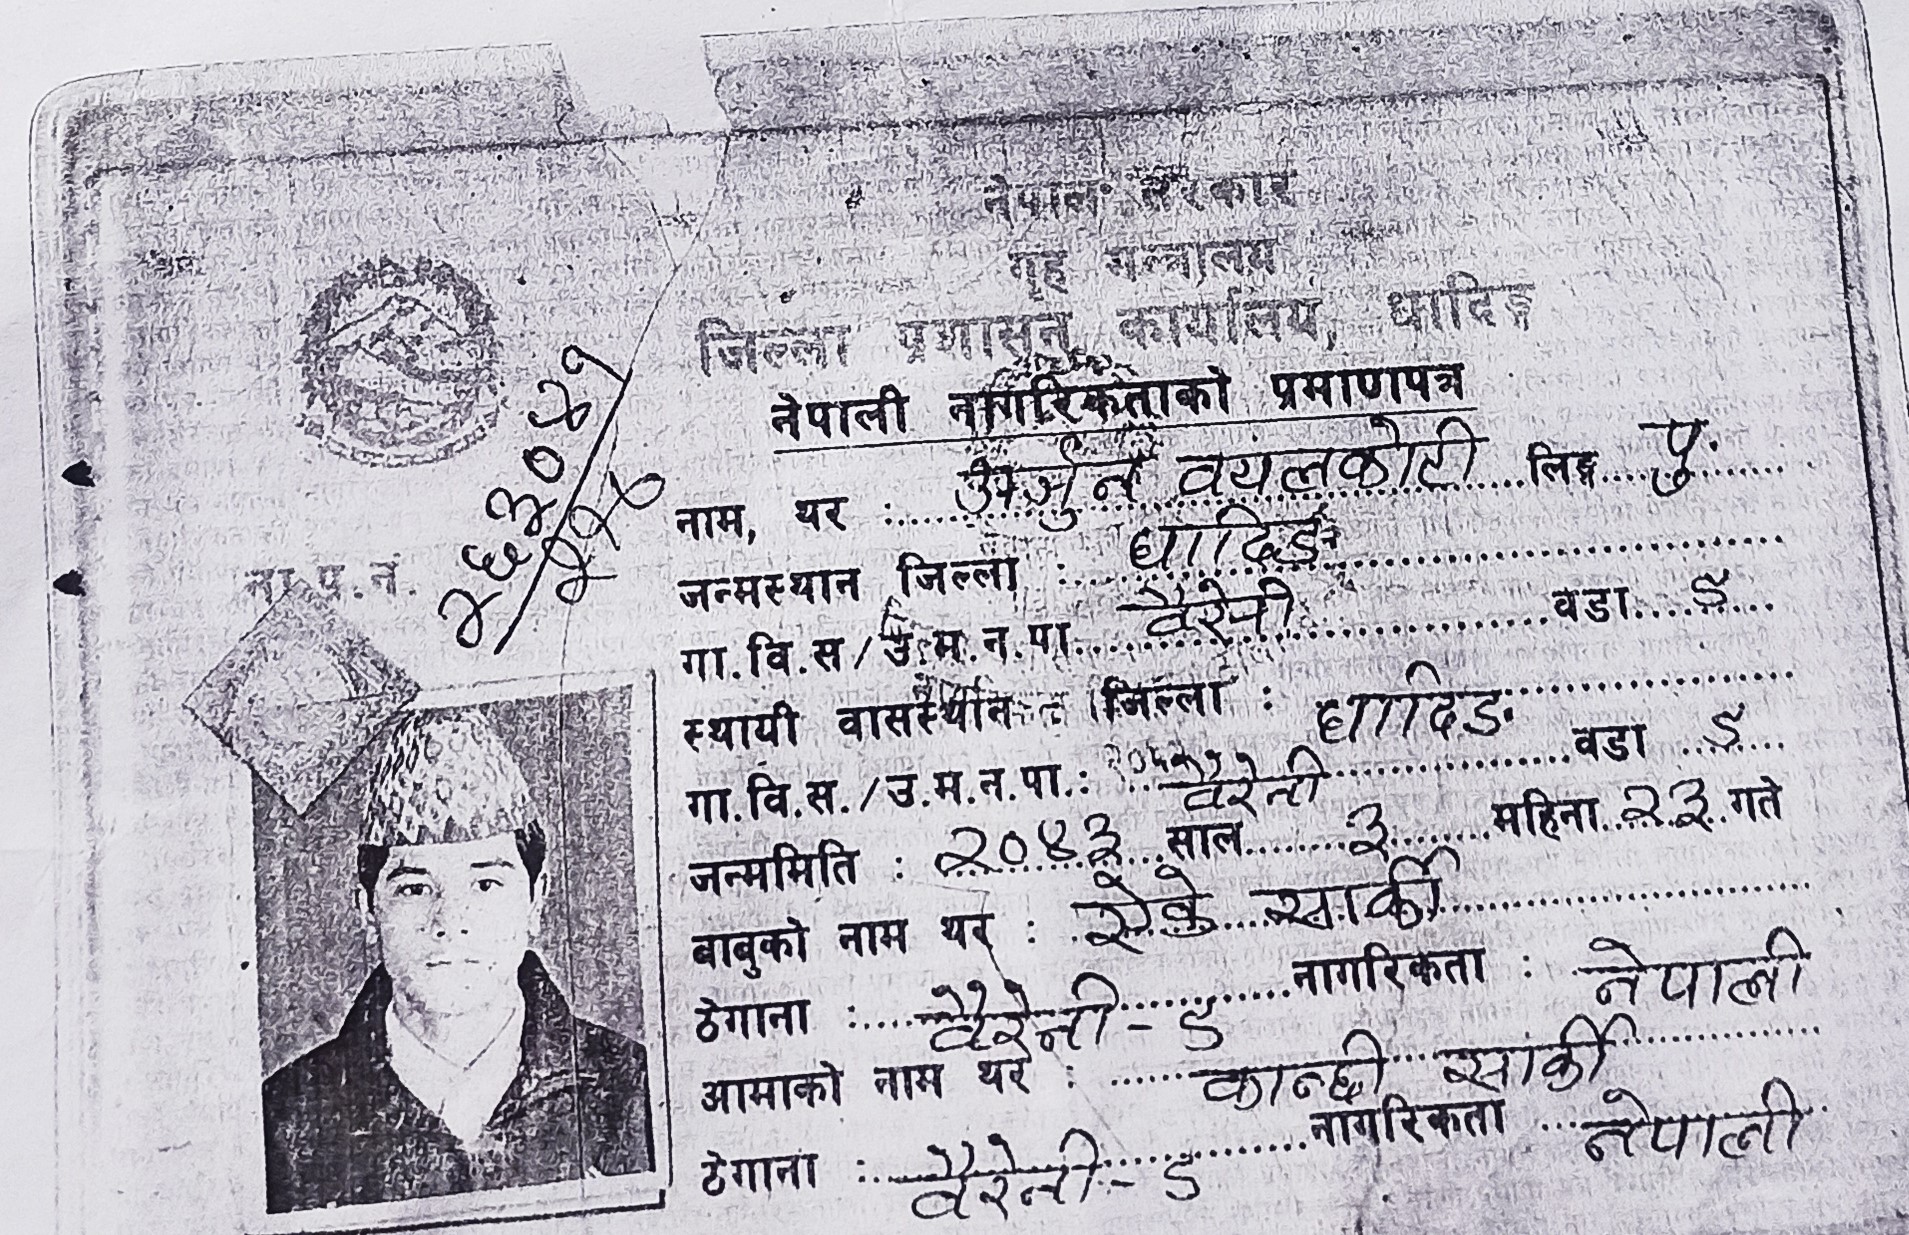 नेपाल सरकार
गृह मन्त्रालय
जिल्ला प्रशासन कार्यालय, धादिङ
नेपाली नागरिकताको प्रमाणपत्र
ना.प.नं.
नाम, थर : अर्जुन वयलकोटी लिङ्ग पु.
जन्मस्थान जिल्ला : धादिङ
गा.वि.स/उ.म.न.पा. वैरेनी वडा ८
स्थायी वासस्थान जिल्ला : धादिङ
गा.वि.स./उ.म.न.पा.: वैरेनी वडा ८
जन्ममिति : २०४३ साल ३ महिना २३ गते
बाबुको नाम थर : सार्की
ठेगाना : वैरेनी - ८ नागरिकता : नेपाली
आमाको नाम थर : कान्छी सार्की
ठेगाना : वैरेनी - ८ नागरिकता नेपाली